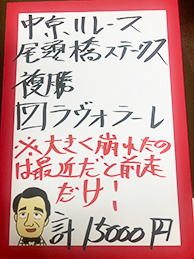 中京11レース
尾頭橋ステークス
複勝
四ラヴォラーレ
※大きく崩れたの
は最近だと前走
だけ！
計15000円